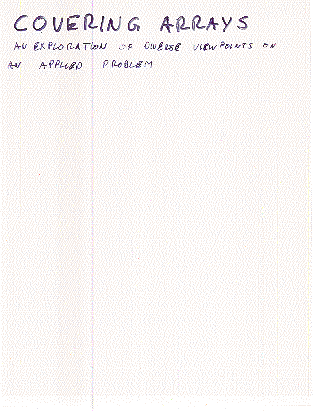 COVERING ARRAYS
AN EXPLORATION OF DIVERSE VIEWPOINTS ON
AN APPLIED PROBLEM